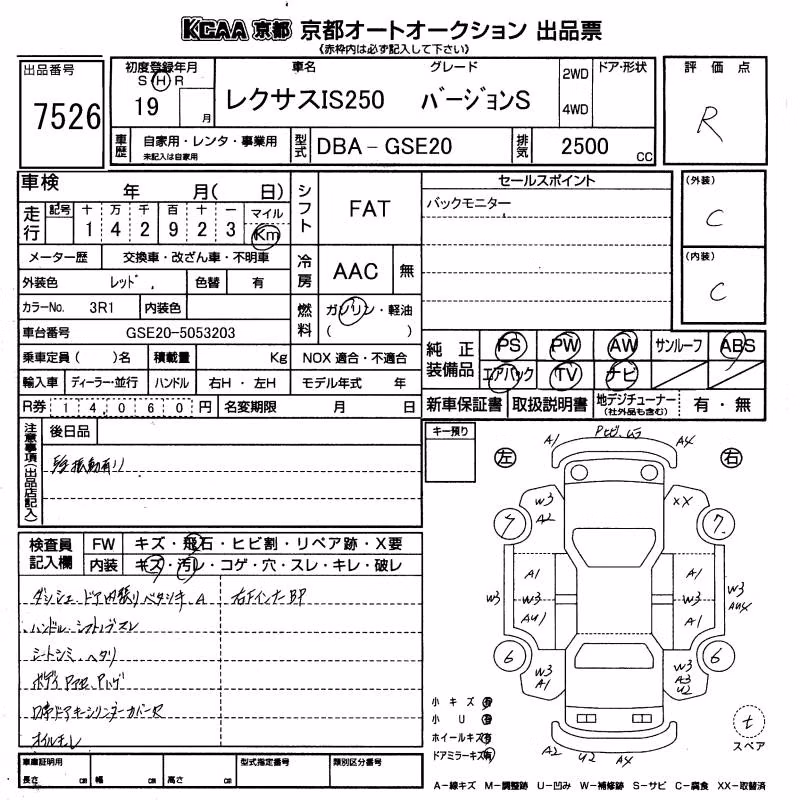 KCAA 京都 京都オートオークション 出品票
《赤枠内は必ず記入して下さい》
出品番号
7526
初度登録年月
S H R
19 月
車名 グレード
レクサスIS250 バージョンS
2WD
4WD
ドア・形状
評価点
R
車歴
自家用・レンタ・事業用
未記入は自家用
型式
DBA-GSE20
排気
2500 cc
車検 年 月( 日)
走行
記号 十 万 千 百 十 一 マイル
1 4 2 9 2 3 Km
メーター歴 交換車・改ざん車・不明車
外装色 レッド 色替 有
カラーNo. 3R1 内装色
車台番号 GSE20-5053203
乗車定員( )名 積載量 Kg
輸入車 ディーラー・並行 ハンドル 右H・左H
R券 14,060円 名変期限 月 日
シフト
FAT
冷房
AAC 無
燃料
ガソリン・軽油
( )
NOX 適合・不適合
モデル年式 年
セールスポイント
バックモニター
(外装)
C
(内装)
C
純正装備品
PS PW AW サンルーフ ABS
エアバック TV ナビ
新車保証書 取扱説明書 地デジチューナー 有・無
(社外品も含む)
注意事項(出品店記入)
後日品
振動有り
検査員記入欄
FW キズ・飛石・ヒビ割・リペア跡・X要
内装 キズ・汚レ・コゲ・穴・スレ・キレ・破レ
ハンドル・シフトノブスレ
シートシミ、ヘタリ
オイルモレ
車庫証明用
長さ cm 幅 cm 高さ cm
型式指定番号
類別区分番号
キー預り
左
右
A1
A4
W3
A2
XX
7
7
A1
W3
AU1
A1
W3
A1
W3
W3
AU4
6
6
W3
A1
W3
A3
U2
A2
U2
A4
小キズ 有
小U 有
ホイールキズ 有
ドアミラーキズ 有
t
スペア
A-線キズ M-調整跡 U-凹み W-補修跡 S-サビ C-腐食 XX-取替済